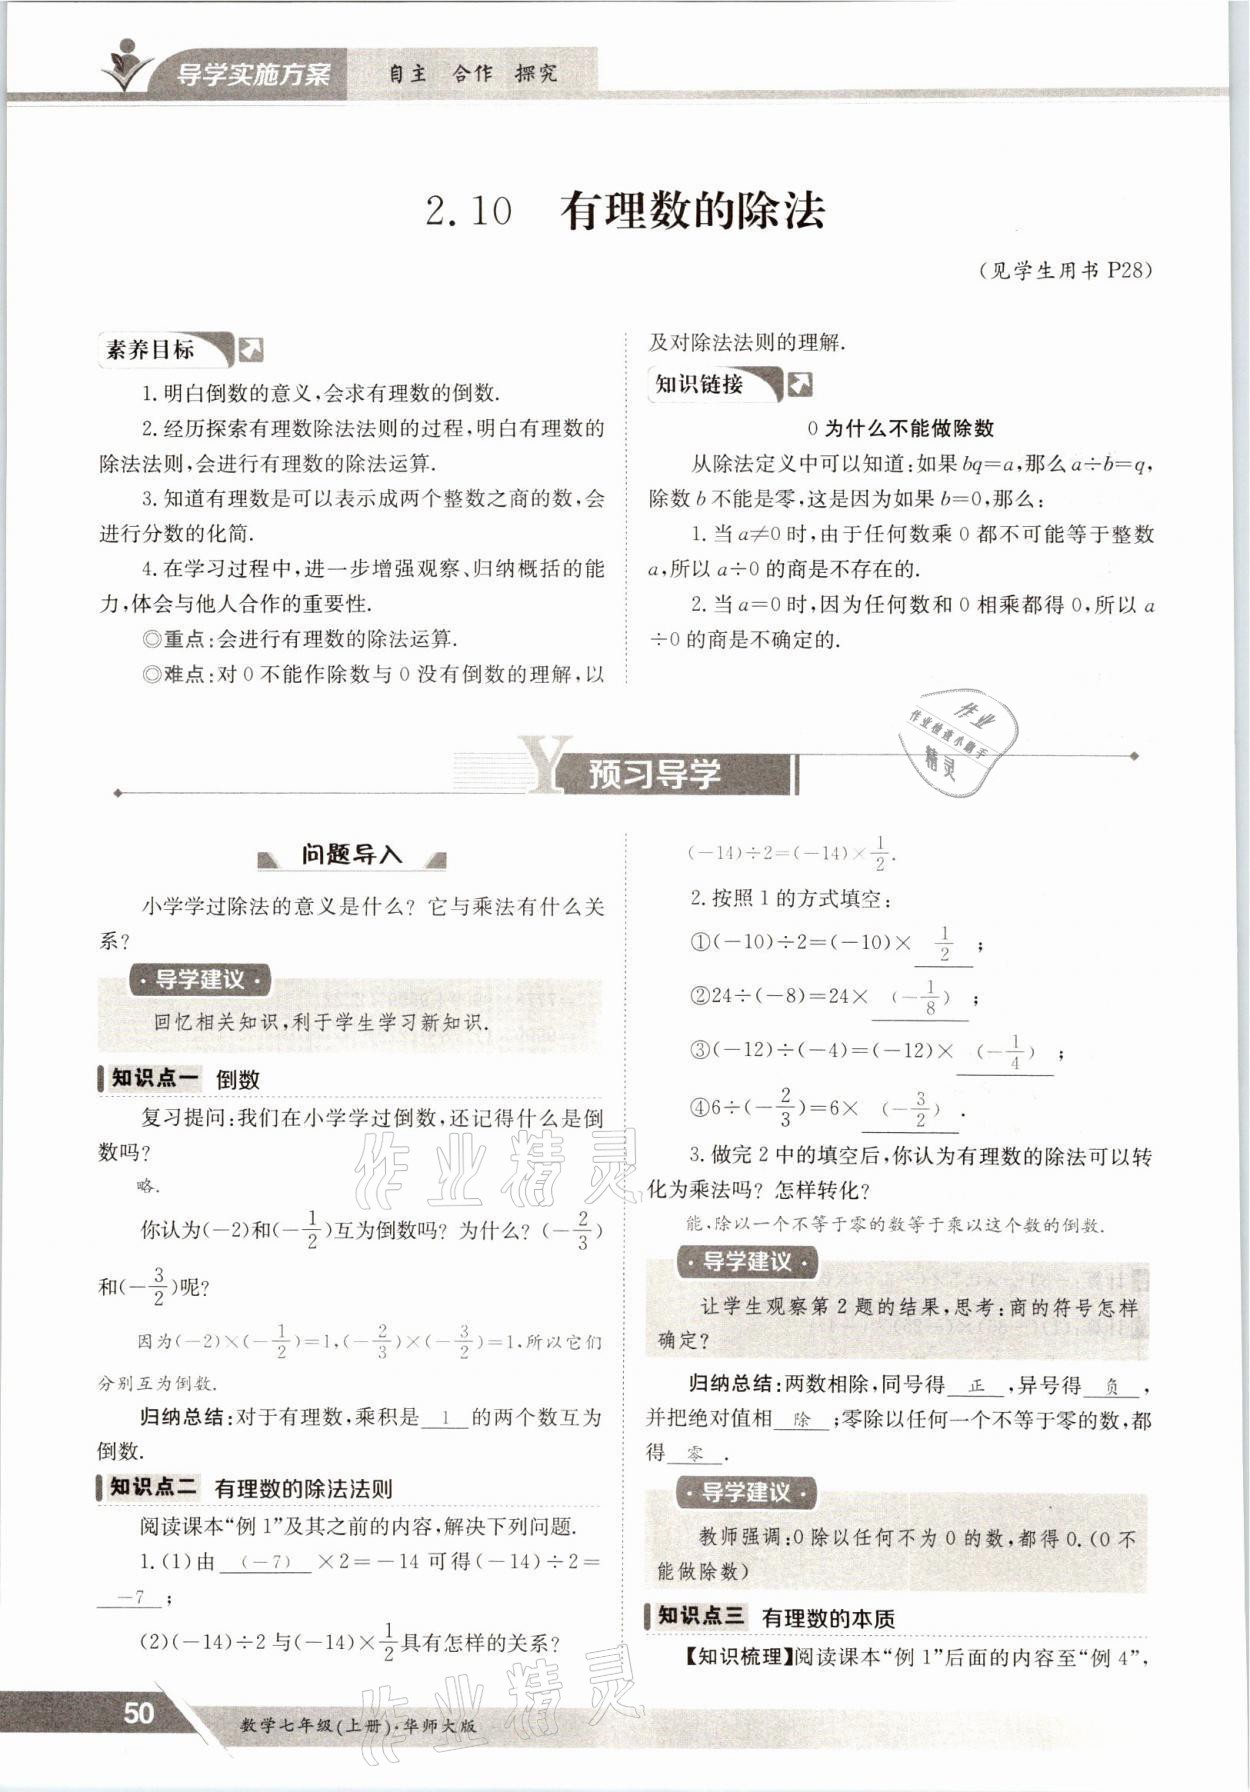 导学实施方案 自主 合作 探究
2.10 有理数的除法
(见学生用书 P28)
素养目标
1.明白倒数的意义,会求有理数的倒数.
2.经历探索有理数除法法则的过程,明白有理数的
除法法则,会进行有理数的除法运算.
3.知道有理数是可以表示成两个整数之商的数,会
进行分数的化简.
4.在学习过程中,进一步增强观察、归纳概括的能
力,体会与他人合作的重要性.
◎重点:会进行有理数的除法运算.
◎难点:对0不能作除数与0没有倒数的理解,以
及对除法法则的理解.
知识链接
0为什么不能做除数
从除法定义中可以知道:如果bq=a,那么a÷b=q,
除数b不能是零,这是因为如果b=0,那么:
1.当a≠0时,由于任何数乘0都不可能等于整数
a,所以a÷0的商是不存在的.
2.当a=0时,因为任何数和0相乘都得0,所以a
÷0的商是不确定的.
作业
作业检查小助手
精灵
Y 预习导学
问题导入
小学学过除法的意义是什么?它与乘法有什么关
系?
·导学建议·
回忆相关知识,利于学生学习新知识.
知识点一 倒数
复习提问:我们在小学学过倒数,还记得什么是倒
数吗?
略.
你认为(-2)和(-1/2)互为倒数吗?为什么?(-2/3)
和(-3/2)呢?
因为(-2)×(-1/2)=1,(-2/3)×(-3/2)=1,所以它们
分别互为倒数.
归纳总结:对于有理数,乘积是 1 的两个数互为
倒数.
知识点二 有理数的除法法则
阅读课本“例1”及其之前的内容,解决下列问题.
1.(1)由 (-7) ×2=-14可得(-14)÷2=
-7 ;
(2)(-14)÷2与(-14)×1/2具有怎样的关系?
(-14)÷2=(-14)×1/2.
2.按照1的方式填空:
①(-10)÷2=(-10)× 1/2 ;
②24÷(-8)=24× (-1/8) ;
③(-12)÷(-4)=(-12)× (-1/4) ;
④6÷(-2/3)=6× (-3/2) .
3.做完2中的填空后,你认为有理数的除法可以转
化为乘法吗?怎样转化?
能,除以一个不等于零的数等于乘以这个数的倒数.
·导学建议·
让学生观察第2题的结果,思考:商的符号怎样
确定?
归纳总结:两数相除,同号得 正 ,异号得 负 ,
并把绝对值相 除 ;零除以任何一个不等于零的数,都
得 零 .
·导学建议·
教师强调:0除以任何不为0的数,都得0.(0不
能做除数)
知识点三 有理数的本质
【知识梳理】阅读课本“例1”后面的内容至“例4”,
作业精灵
作业精灵
50 数学七年级(上册)·华师大版